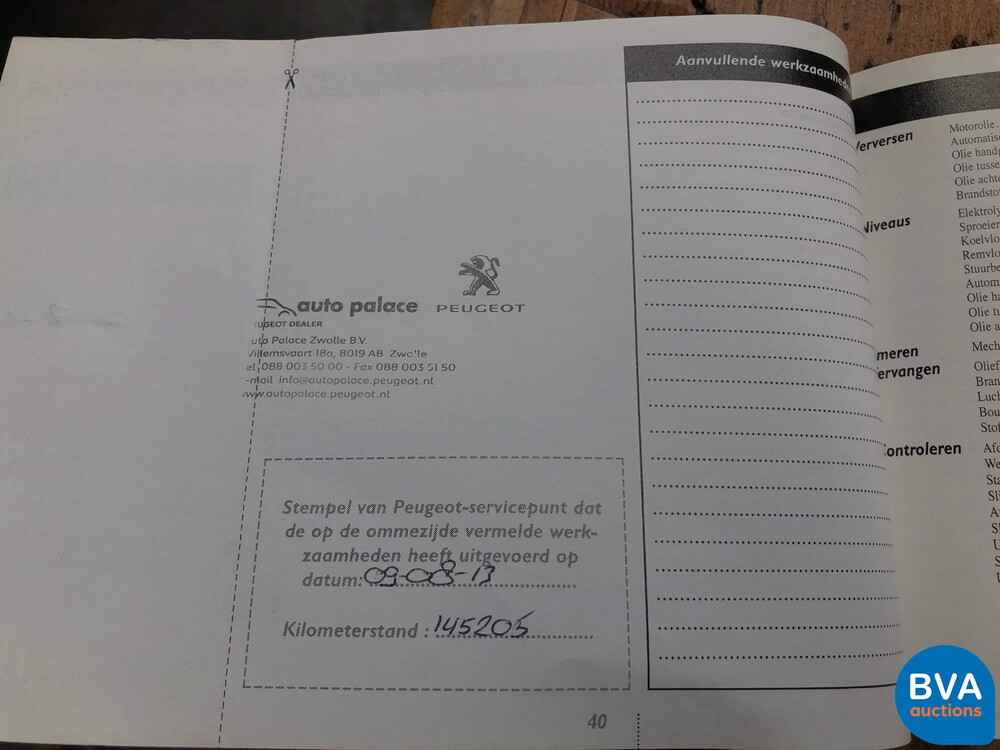 auto palace
PEUGEOT
UGEOT DEALER
uto Palace Zwolle B.V.
Willemsvaart 18a, 8019 AB Zwolle
el. 088 003 50 00 - Fax 088 003 51 50
-mail info@autopalace.peugeot.nl
ww.autopalace.peugeot.nl
Stempel van Peugeot-servicepunt dat
de op de ommezijde vermelde werk-
zaamheden heeft uitgevoerd op
datum: 09-08-13
Kilometerstand : 145205
40
Aanvullende werkzaamhede
Verversen
Motorolie
Automatis
Olie handg
Olie tusse
Olie achte
Brandsto
Niveaus
Elektroly
Sproeier
Koelvlo
Remvlo
Stuurbe
Autom
Olie ha
Olie tu
Olie a
meren
Mech
ervangen
Olief
Bran
Luch
Bou
Stof
Controleren
Afd
We
Sta
Sli
BVA
auctions